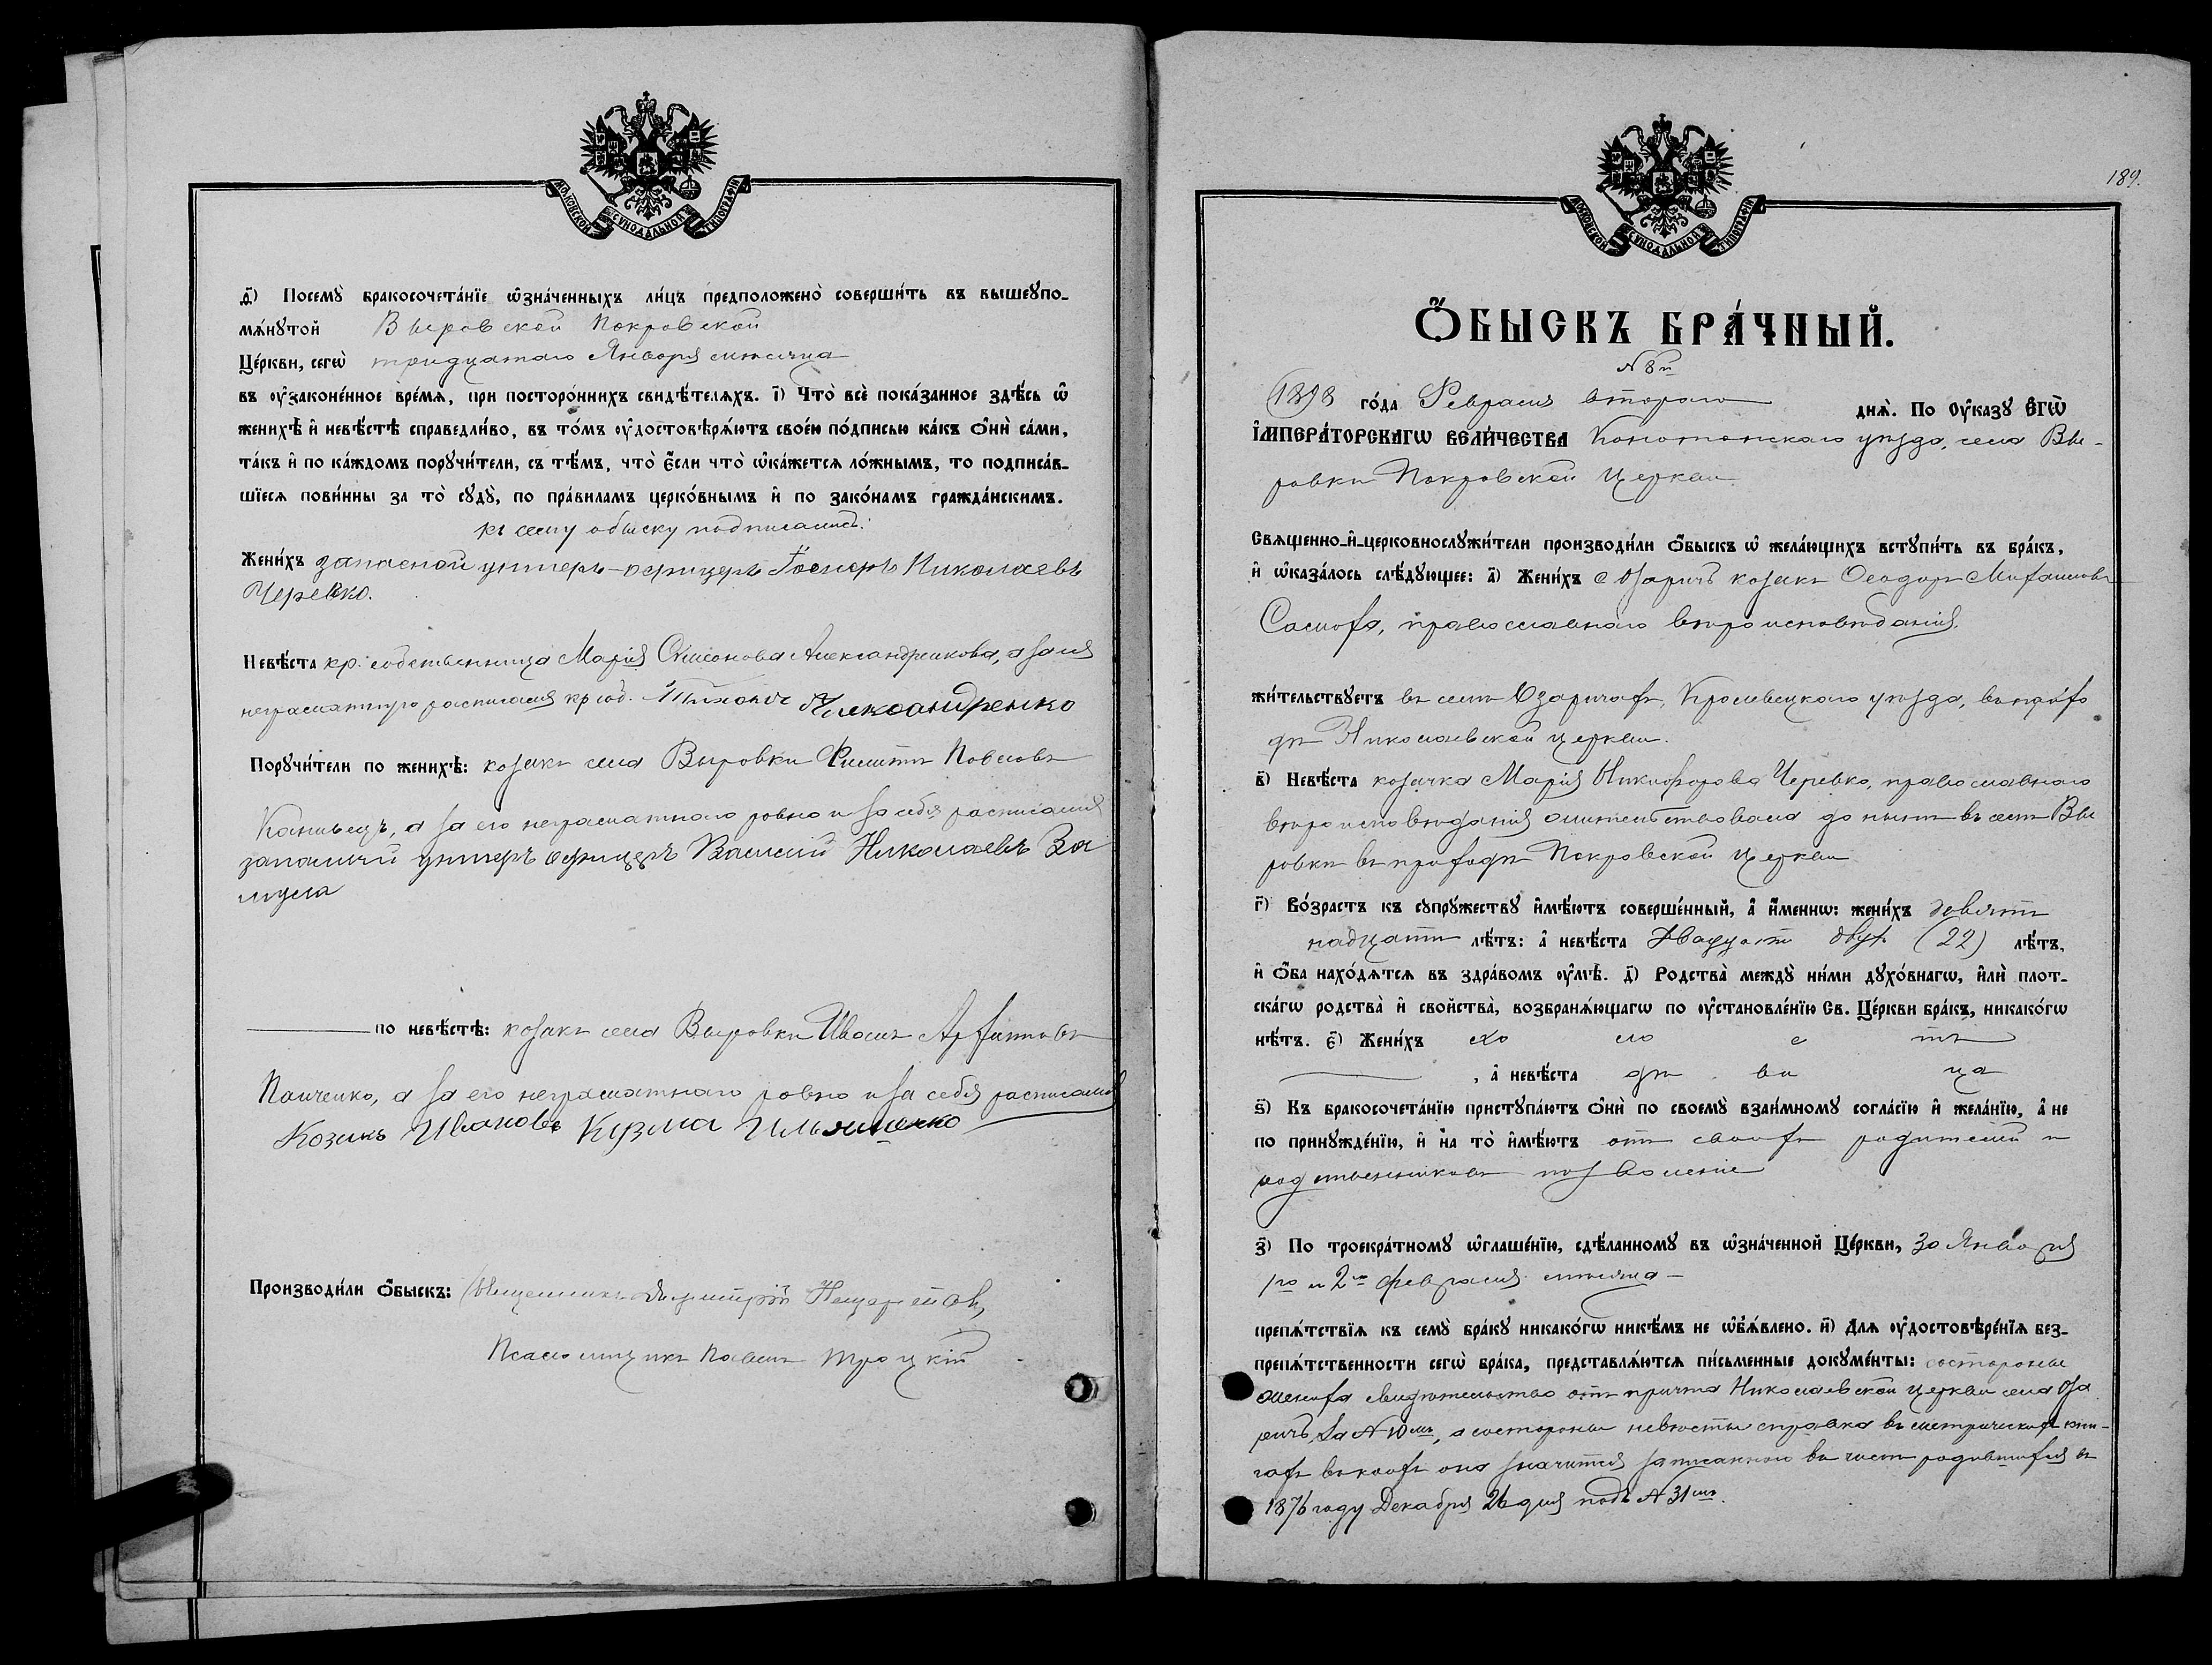 МОСКОВСКОЙ СУНОДАЛЬНОЙ ТИПОГРАФІИ
д҃) Посемꙋ̀ бракосочета́нїе ѡ҆зна́ченныхъ ли́цъ предположено̀ соверши́ть въ вышеꙋпо-
мѧ́нꙋтой Выровской Покровской
Це́ркви, сегѡ̀ тридцатаго Января мѣсяца
въ ᲂу҆законе́нное вре́мѧ, при посторо́ннихъ свидѣ́телѧхъ. і҃) Что̀ всѐ пока́занное здѣ́сь ѡ҆
женихѣ̀ и҆ невѣ́стѣ справедли́во, въ то́мъ ᲂу҆достовѣрѧ́ютъ свое́ю по́дписью ка́къ ѻ҆нѝ са́ми,
та́къ и҆ по ка́ждомъ порꙋчи́тели, съ тѣ́мъ, что̀ є҆́сли что̀ ѡ҆ка́жетсѧ ло́жнымъ, то подписа́в-
шїесѧ пови́нны за то̀ сꙋдꙋ̀, по пра́виламъ церко́внымъ и҆ по зако́намъ гражда́нскимъ.
къ сему обыску подписались:
Жени́хъ запасной унтеръ-офицеръ Николаевъ
Черевко.
Невѣ́ста кр. собственница Марія Симонова Александренкова, а за нея
неграмотную росписался кр. соб. Александренко
Порꙋчи́тели по женихѣ̀: козакъ села Выровки Филиппъ Павловъ
а за его неграмотнаго ровно и за себя росписался
запасный унтеръ офицеръ Василій Николаевъ За
мула
по невѣ́стѣ: козакъ села Выровки Иванъ
Панченко, а за его неграмотнаго ровно и за себя росписался
Козакъ Ивановъ Кузма Ильяшенко
Производи́ли ѻ҆́быскъ: Священникъ Димитрій
Псаломщикъ Павелъ Троцкій
189.
МОСКОВСКОЙ СУНОДАЛЬНОЙ ТИПОГРАФІИ
Ѻ҆́БЫСКЪ БРА́ЧНЫЙ.
№ 8й
1898 го́да Февраля втораго днѧ̀. По Оу҆ка́зꙋ Є҆ГѠ̀
І҆МПЕРА́ТОРСКАГѠ ВЕЛИ́ЧЕСТВА Конотопскаго уѣзда, села Вы-
ровки Покровской церкви
Свѧщенно-и҆-церковнослꙋжи́тели производи́ли ѻ҆́быскъ ѡ҆ жела́ющихъ встꙋпи́ть въ бра́къ,
и҆ ѡ҆каза́лось слѣ́дꙋющее: а҃) Жени́хъ с. Озаричъ козакъ Ѳеодоръ Михаиловъ
православнаго вѣроисповѣданія,
жи́тельствꙋетъ въ селѣ Озаричахъ, Кролевецкаго уѣзда, въ прихо
дѣ Николаевской церкви.
в҃) Невѣ́ста козачка Марія Никифорова Черевко, православнаго
вѣроисповѣданія жительствовала до нынѣ въ селѣ Вы
ровки въ приходѣ Покровской церкви
г҃) Во́зрастъ къ сꙋпрꙋ́жествꙋ и҆мѣ́ютъ соверше́нный, а҆ и҆́меннѡ: жени́хъ девят
надцати лѣ́тъ: а҆ невѣ́ста двадцати двухъ (22) лѣ́тъ,
и҆ ѻ҆́ба нахо́дѧтсѧ въ здра́вомъ ᲂу҆мѣ̀. д҃) Родства̀ междꙋ̀ ни́ми дꙋхо́внагѡ, и҆лѝ плот-
ска́гѡ родства̀ и҆ сво́йства, возбранѧ́ющагѡ по ᲂу҆становле́нїю Св. Це́ркви бра́къ, никако́гѡ
нѣ́тъ. є҃) Жени́хъ хо ло с тъ
, а҆ невѣ́ста дѣ ви ца
ѕ҃) Къ бракосочета́нїю пристꙋпа́ютъ ѻ҆нѝ по своемꙋ̀ взаи́мномꙋ согла́сїю и҆ жела́нїю, а҆ не
по принꙋжде́нїю, и҆ на то̀ и҆мѣ́ютъ отъ своихъ родителей и
родственниковъ позволеніе
з҃) По троекра́тномꙋ ѡ҆глаше́нїю, сдѣ́ланномꙋ въ ѡ҆зна́ченной Це́ркви, 30 Января
1го и 2го февраля мѣсяца -
препѧ́тствїѧ къ семꙋ̀ бра́кꙋ никако́гѡ никѣ́мъ не ѡ҆б̾ѧ́влено. и҃) Длѧ ᲂу҆достовѣре́нїѧ без-
препѧ́тственности сегѡ̀ бра́ка, представлѧ́ютсѧ пи́сьменные докꙋме́нты: со стороны
жениха свидѣтельство отъ причта Николаевской церкви села Оза
ричъ, за № 10мъ, а со стороны невѣсты справка въ метрическихъ кни-
гахъ въ коихъ она значится записанною въ числѣ родившихся въ
1876 году Декабря 26 дня подъ № 31мъ.